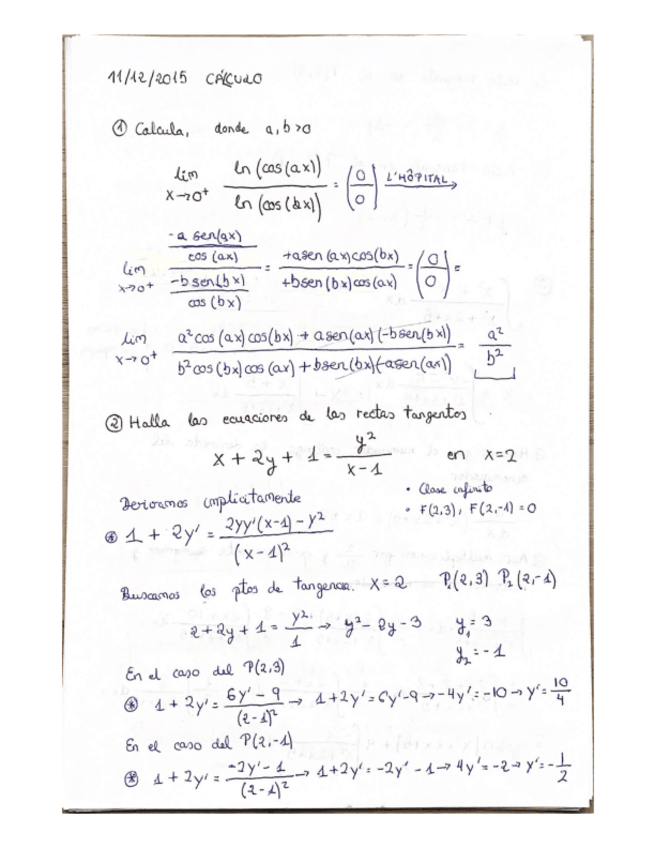 11/12/2015 CÁLCULO
① Calcula, donde a, b>0
lim x→0⁺ ln (cos(ax)) / ln (cos(bx)) = (0/0) L'HÔPITAL→
lim x→0⁺ (-a sen(ax) / cos(ax)) / (-b sen(bx) / cos(bx)) = +a sen(ax)cos(bx) / +b sen(bx)cos(ax) = (0/0) =
lim x→0⁺ a² cos(ax) cos(bx) + a sen(ax)(-b sen(bx)) / b² cos(bx) cos(ax) + b sen(bx)(-a sen(ax)) = a²/b²
② Halla las ecuaciones de las rectas tangentes
x + 2y + 1 = y² / x-1 en x=2
• Clase infinito
Derivamos implícitamente • F(2,3), F(2,-1) = 0
⊛ 1 + 2y' = 2yy'(x-1) - y² / (x-1)²
Buscamos los ptos de tangencia. x=2 P₁(2,3) P₂(2,-1)
2+2y+1 = y²/1 → y²-2y-3 y₁=3
y₂=-1
En el caso del P(2,3)
⊛ 1 + 2y' = 6y' - 9 / (2-1)² → 1+2y' = 6y'-9 → -4y' = -10 → y' = 10/4
En el caso del P(2,-1)
⊛ 1 + 2y' = -2y' - 1 / (2-1)² → 1+2y' = -2y' -1 → 4y' = -2 → y' = -1/2